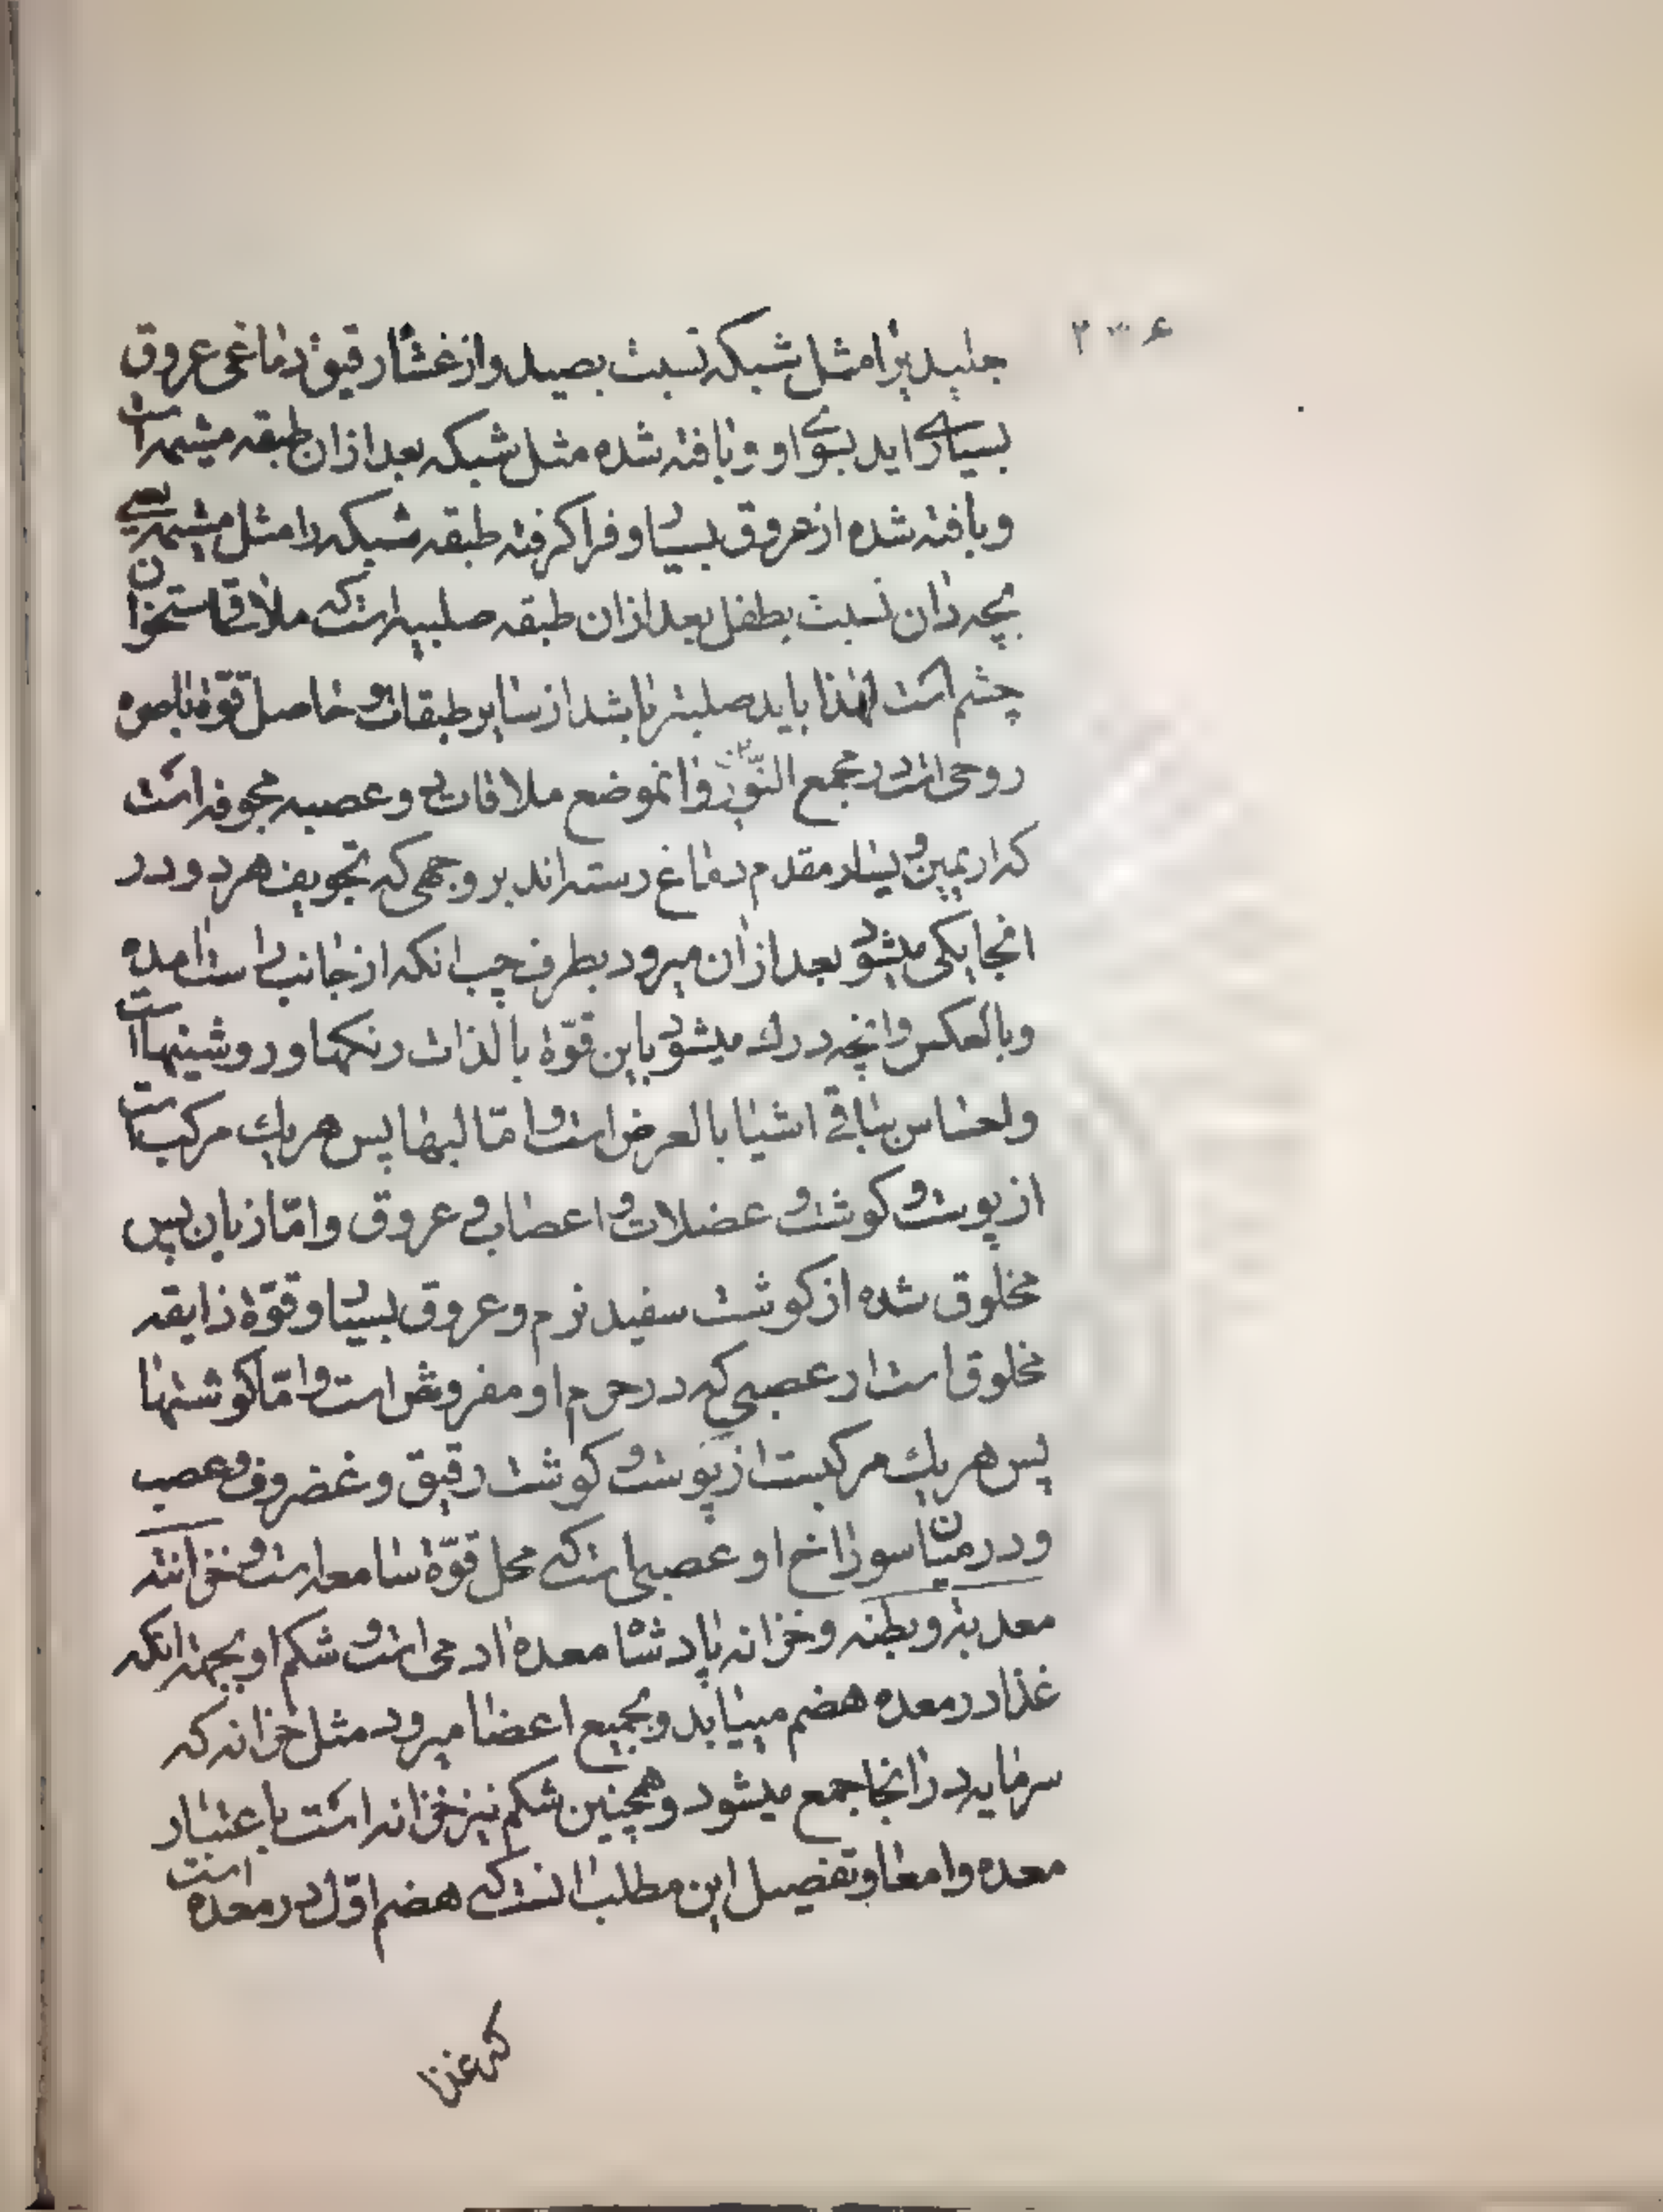 جلیدیه را مثل شبکه نسبت بصید و از غشاء رقیق دماغی عروق
بسیاری اید بسوی او و بافته شده مثل شبکه بعد از ان طبقه مشیمه است
و بافته شده از عروق بسیار و فرا کرفته طبقه شبکه را مثل مشیمه یعنی
بچه دان نسبت بطفل بعد از ان طبقه صلبیه است که ملاقی استخوان
چشم است لهذا باید صلبتر باشد از سایر طبقات و حاصل قوّة باصره
روحی است در مجمع النّور و ان موضع ملاقات دو عصبه مجوفه است
که از یمین و یسار مقدم دماغ رسته اند بر وجهی که تجویف هر دو در
انجا یکی میشود بعد از ان میرود بطرف چپ انکه از جانب راست امده
و بالعکس و انچه درك میشود باین قوّة بالذات رنکها و روشنیها است
و احساس بباقی اشیا بالعرض است و امّا لبها پس هر یك مرکب است
از پوست و کوشت و عضلات و اعصاب و عروق و امّا زبان پس
مخلوق شده از کوشت سفید نرم و عروق بسیار و قوّة ذایقه
مخلوق است از عصبی که در جرم او مفروش است و امّا کوشها
پس هر یك مرکبست از پوست و کوشت رقیق و غضروف و عصب
و در میان سوراخ او عصبی است که محل قوّة سامعه است و خزانته
معدته و بطنه و خزانه پادشاه معده ادمی است و شکم او بجهة انکه
غذا در معده هضم مییابد و بجمیع اعضا میرود مثل خزانه که
سرمایه در انجا جمع میشود و همچنین شکم نیز خزانه است باعتبار
معده و امعا و تفصیل این مطلب انست که هضم اوّل در معده است
که غذا